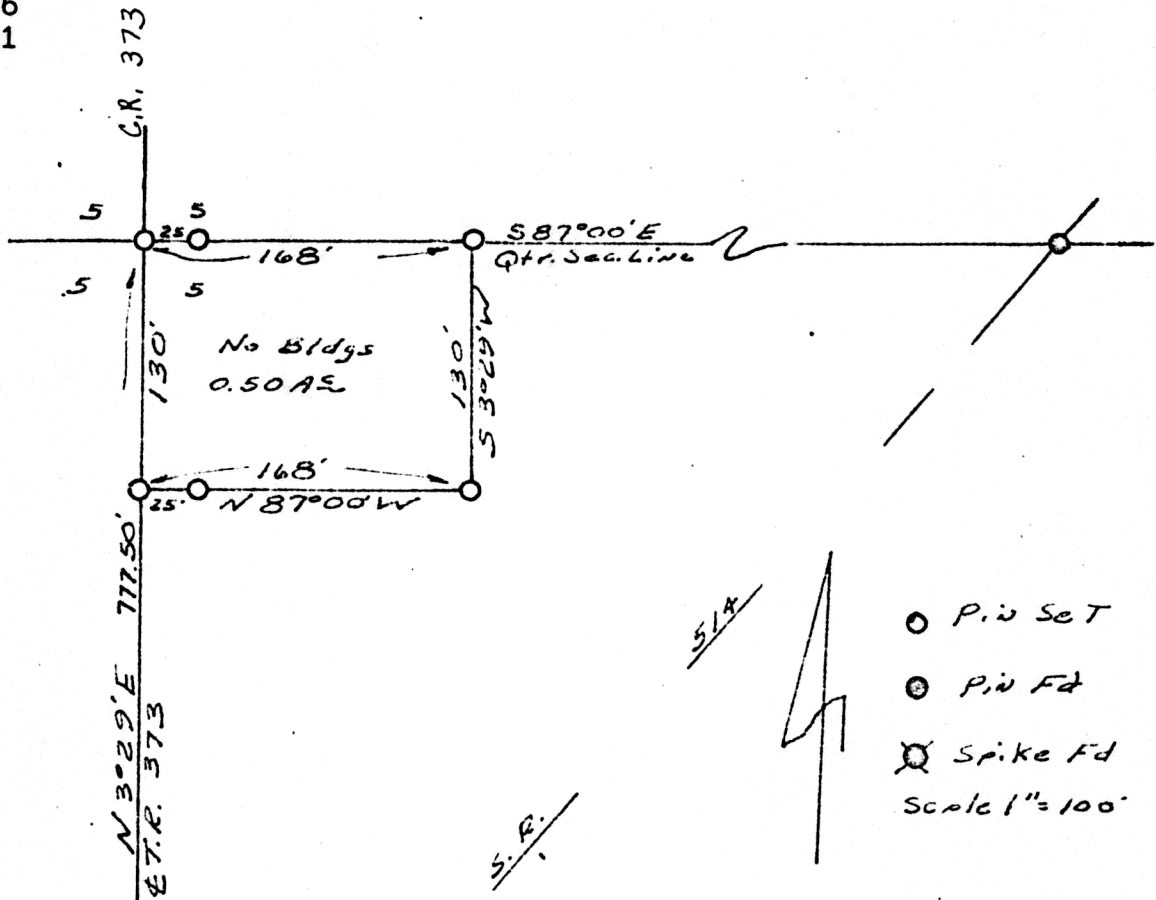 6
1
C.R. 373
5
5
25
168'
S 87°00' E
Qtr. Sec. Line
.5
5
130'
No Bldgs
0.50 Ac
130'
S 3°29' W
168'
25'
N 87°00' W
777.50'
N 3°29' E
℄ T.R. 373
S.R.
Pin Set
Pin Fd
Spike Fd
Scale 1"=100'